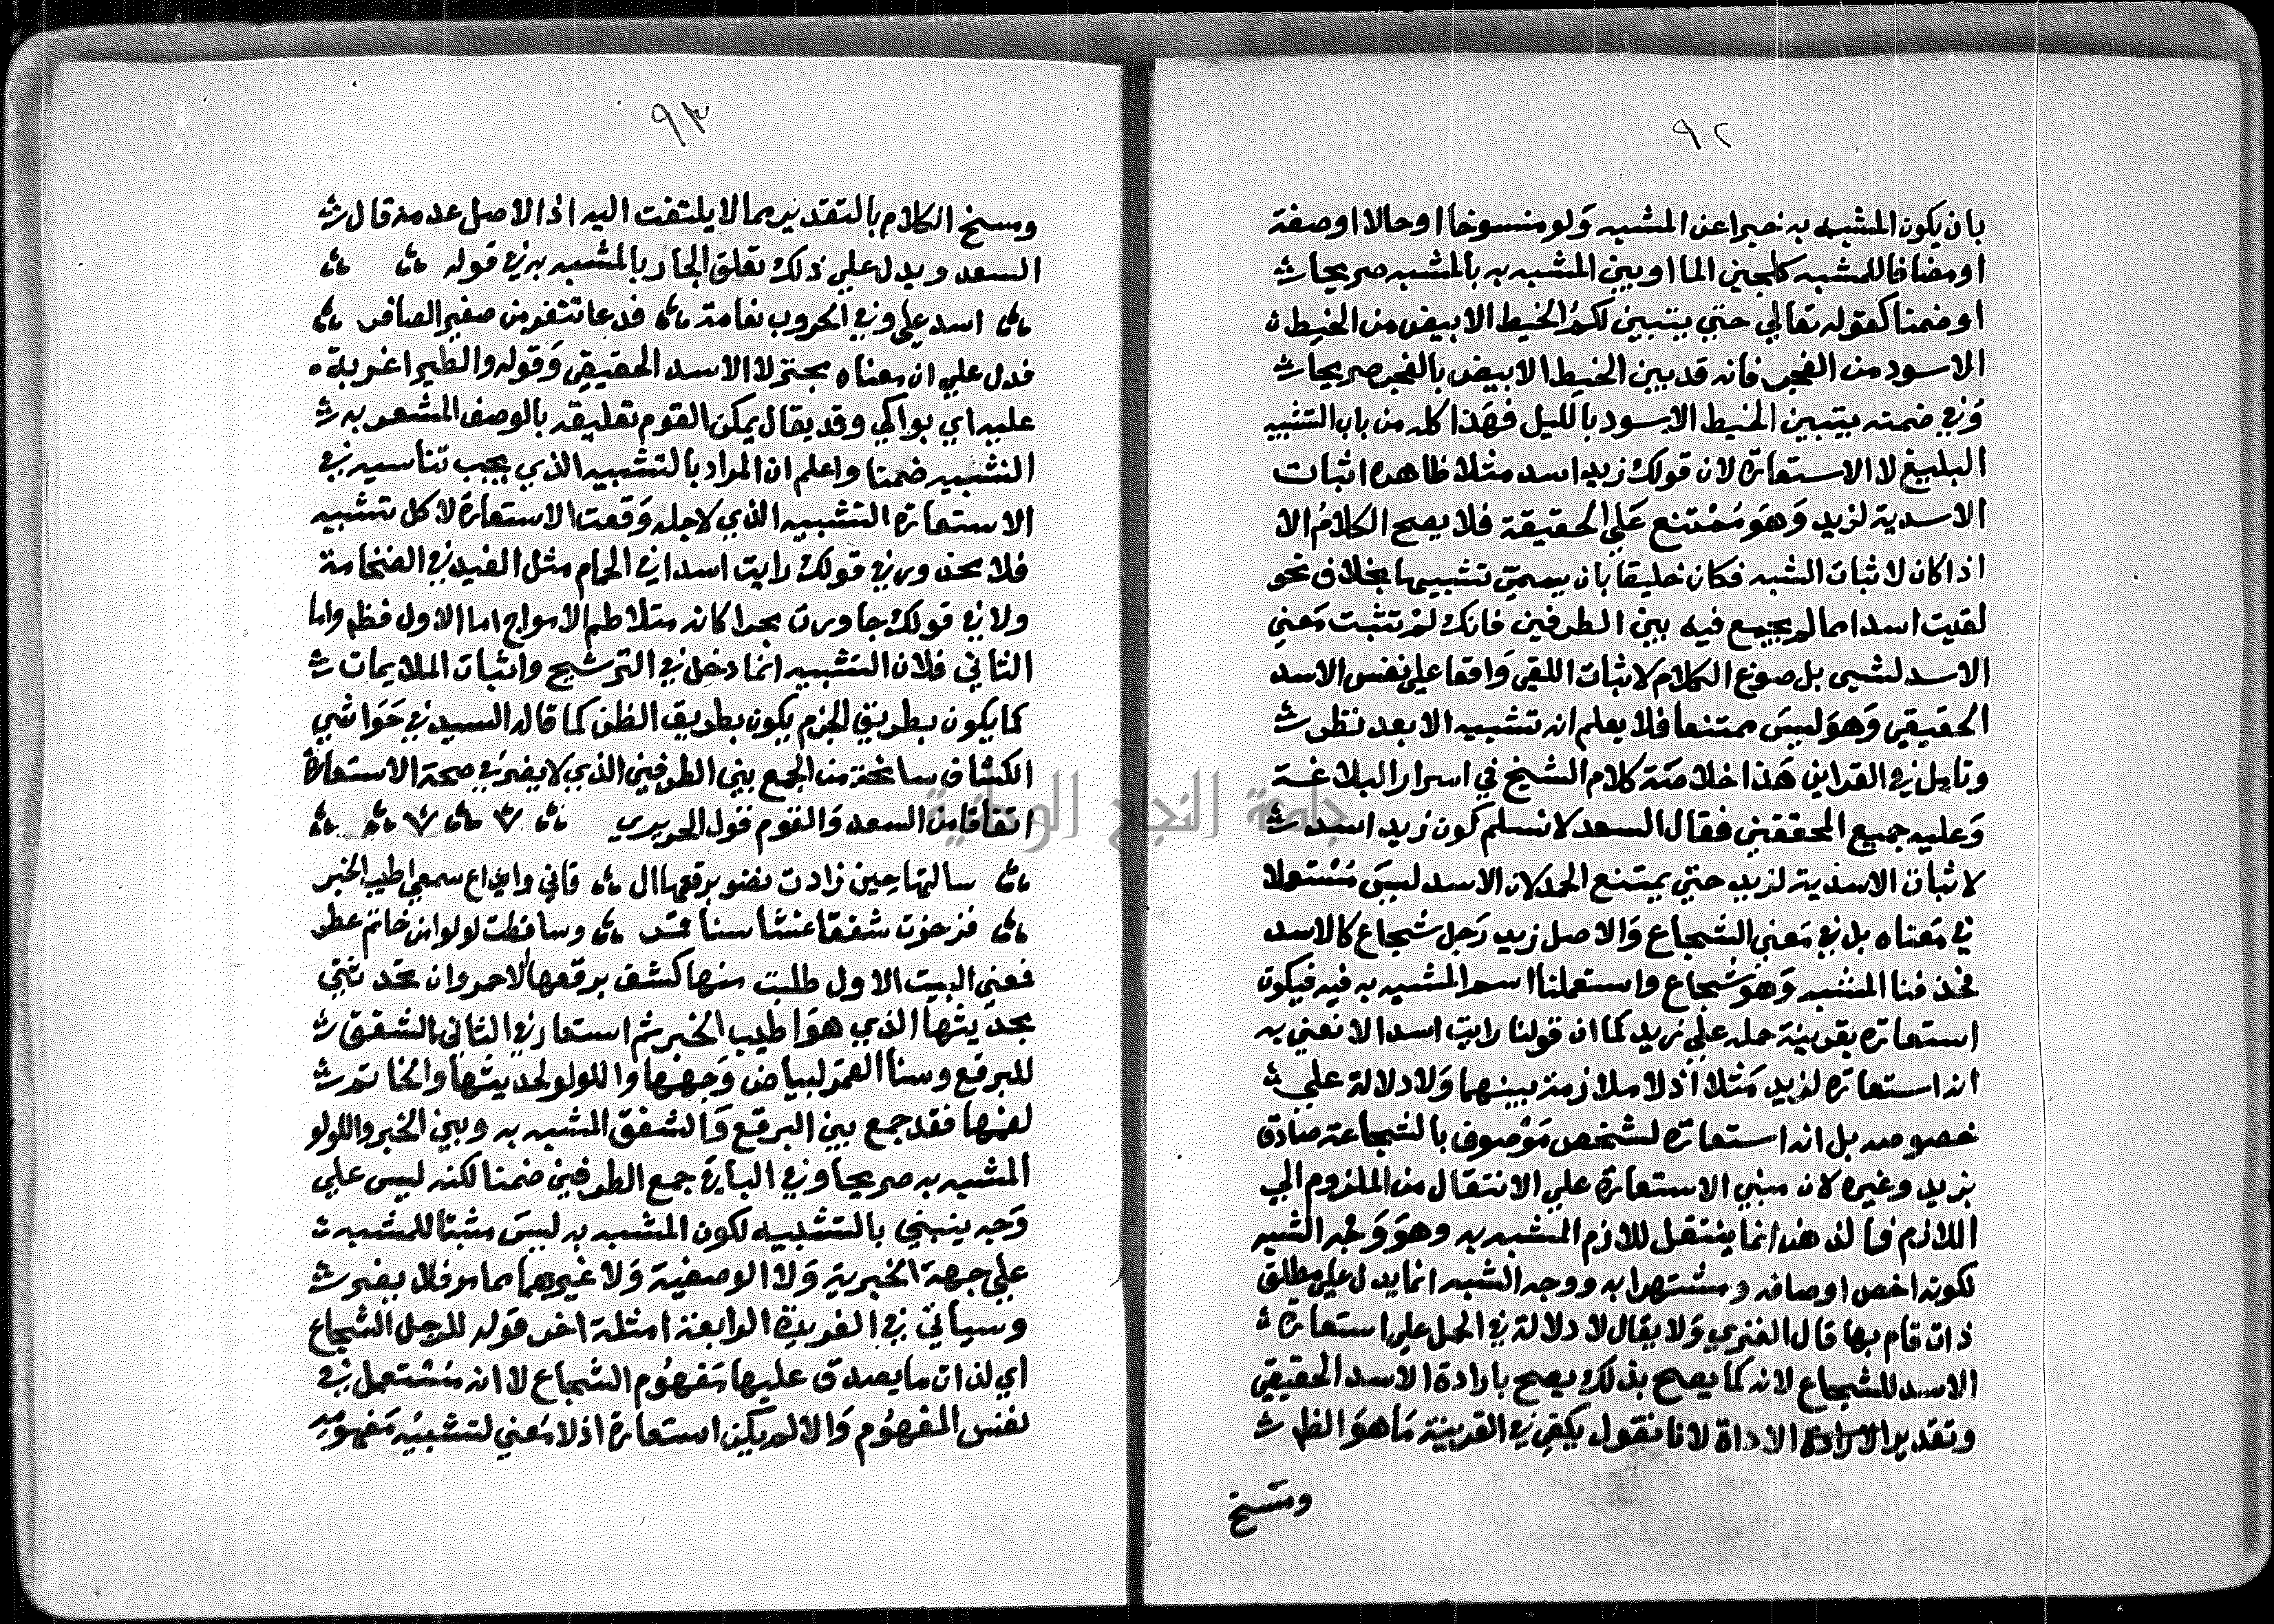 ٩٢
بان يكون المشبه به خبرا عن المشبه ولو منسوخا او حالا او صفة
او مضافا للمشبه كلجين الما او بين المشبه به بالمشبه صريحا
او ضمنا كقوله تعالي حتي يتبين لكم الخيط الابيض من الخيط
الاسود من الفجر فانه قد بين الخيط الابيض بالفجر صريحا
وفي ضمنه يتبين الخيط الاسود بالليل فهذا كله من باب التشبيه
البليغ لا الاستعارة لان قولك زيد اسد مثلا ظاهره اثبات
الاسدية لزيد وهو ممتنع علي الحقيقة فلا يصح الكلام الا
اذا كان لاثبات الشبه فكان خليقا بان يسمي تشبيها بخلاف نحو
لقيت اسدا مما لم يجمع فيه بين الطرفين فانك لم تثبت معني
الاسد لشيى بل صوغ الكلام لاثبات اللقي واقعا علي نفس الاسد
الحقيقي وهو ليس ممتنعا فلا يعلم انه تشبيه الا بعد نظر
وتامل في القراين هذا خلاصة كلام الشيخ في اسرار البلاغة
وعليه جميع المحققين فقال السعد لا نسلم كون زيد اسد
لاثبات الاسدية لزيد حتي يمتنع الحمل لان الاسد ليس مستعملا
في معناه بل في معني الشجاع والاصل زيد رجل شجاع كالاسد
فحذفنا المشبه وهو شجاع واستعملنا اسم المشبه به فيه فيكون
استعارة بقرينة حمله علي زيد كما ان قولنا رايت اسدا لا نعني به
انه استعارة لزيد مثلا اذ لا ملازمة بينهما ولا دلالة علي
خصوصه بل انه استعارة لشخص موصوف بالشجاعة صادق
بزيد وغيره لان مبني الاستعارة علي الانتقال من الملزوم الي
اللازم فالذهن انما ينتقل للازم المشبه به وهو وجه الشبه
لكونه اخص اوصافه ومشتهرا به ووجه الشبه انما يدل علي مطلق
ذات قام بها قال الفنري ولا يقال لا دلالة في الحمل علي استعارة
الاسد للشجاع لانه كما يصح بذلك يصح بارادة الاسد الحقيقي
وتقدير الاداة لانا نقول يكفي في القرينة ما هو الظ
ومسخ
٩٣
ومسخ الكلام بالتقدير مما لا يلتفت اليه اذ الاصل عدمه قال
السعد ويدل علي ذلك تعلق الجار بالمشبه به في قوله
اسد علي وفي الحروب نعامة فدعا تنفر من صفير الصافر
فدل علي ان معناه مجترلا الاسد الحقيقي وقوله والطير اغربة
عليه اي بواكي وقد يقال يمكن القوم تعليقه بالوصف المشعر به
التشبيه ضمنا واعلم ان المراد بالتشبيه الذي يجب تناسيه في
الاستعارة التشبيه الذي لاجله وقعت الاستعارة لا كل تشبيه
فلا محذور في قولك رايت اسدا في الحمام مثل الفيد في الضخامة
ولا في قولك جاورت بحرا كانه متلاطم الامواج اما الاول فظ واما
الثاني فلان التشبيه انما دخل في الترشيح واثبات الملايمات
كما يكون بطريق الجزم يكون بطريق الظن كما قاله السيد في حواشي
الكشاف سا نحة من الجمع بين الطرفين الذي لا يضر في صحة الاستعارة
اتفاقا من السعد والقوم قول الحريري
سالتها حين زادت نضو برقعها ال قاني وايداع سمعي اطيب الخبر
فزحزت شفقا غشا سنا قمر وساقطت لولوا من خاتم عطر
فعني البيت الاول طلبت منها كشف برقعها الاحمر وان تحدثني
بحديثها الذي هو اطيب الخبر ثم استعار في الثاني الشفق
للبرقع وسنا القمر لبياض وجهها واللولو لحديثها والخاتم
لفمها فقد جمع بين البرقع والشفق المشبه به وبين الخبر واللولو
المشبه به صريحا وفي الباقي جمع الطرفين ضمنا لكنه ليس علي
وجه ينبني بالتشبيه لكون المشبه به ليس مثبتا للمشبه
علي جهة الخبرية ولا الوصفية ولا غيرهما مما مر فلا يضر
وسياتي في الفريدة الرابعة امثلة اخر قوله للرجل الشجاع
اي لذات ما يصدق عليها مفهوم الشجاع لا انه مستعمل في
نفس المفهوم والا لم يكن استعارة اذ لا معني لتشبيه مفهوم
جامعة النجاح الوطنية